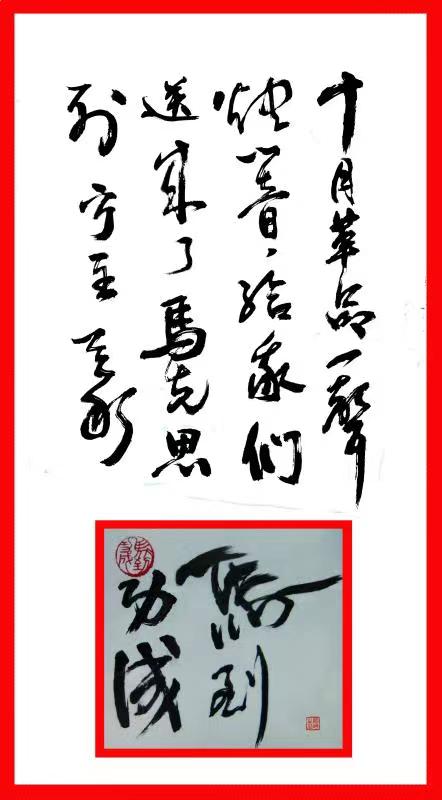 十月革命一聲
炮響，给我们
送来了馬克思
列宁主義
馬到
功成